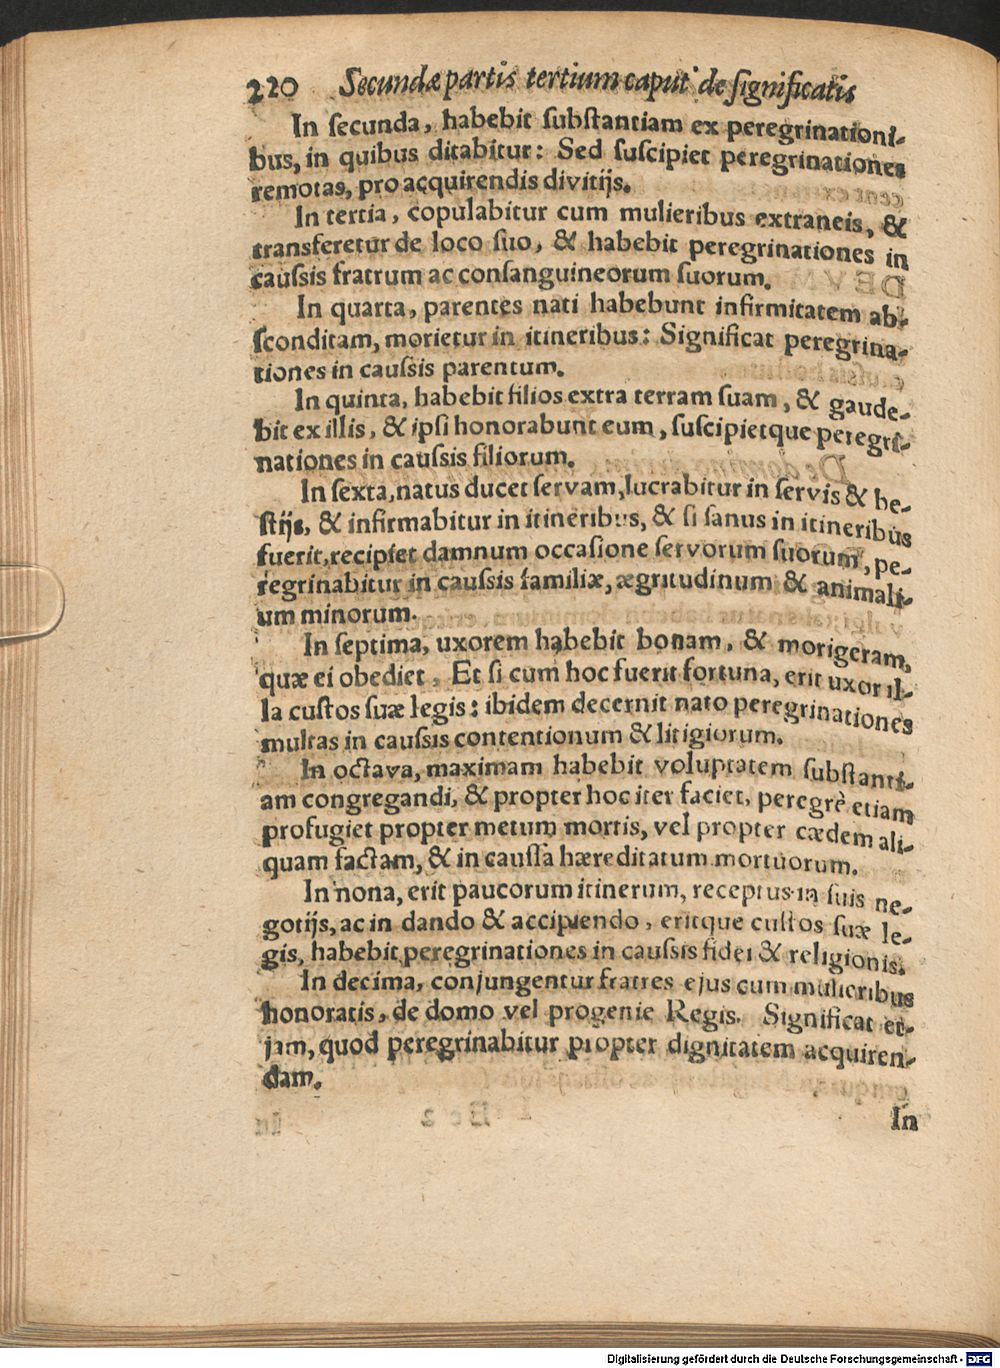 220 Secundæ partis tertium caput de significatis
In secunda, habebit substantiam ex peregrinationi-
bus, in quibus ditabitur: Sed suscipiet peregrinationes
remotas, pro acquirendis divitijs.
In tertia, copulabitur cum mulieribus extraneis, &
transferetur de loco suo, & habebit peregrinationes in
caussis fratrum ac consanguineorum suorum.
In quarta, parentes nati habebunt infirmitatem ab-
sconditam, morietur in itineribus: Significat peregrina-
tiones in caussis parentum.
In quinta, habebit filios extra terram suam, & gaude-
bit ex illis, & ipsi honorabunt eum, suscipietque peregri-
nationes in caussis filiorum.
In sexta, natus ducet servam, lucrabitur in servis & be-
stijs, & infirmabitur in itineribus, & si sanus in itineribus
fuerit, recipiet damnum occasione servorum suorum, pe-
regrinabitur in caussis familiæ, ægritudinum & animali-
um minorum.
In septima, uxorem habebit bonam, & morigeram,
quæ ei obediet. Et si cum hoc fuerit fortuna, erit uxor il-
la custos suæ legis: ibidem decernit nato peregrinationes
multas in caussis contentionum & litigiorum.
In octava, maximam habebit voluptatem substanti-
am congregandi, & propter hoc iter faciet, peregrè etiam
profugiet propter metum mortis, vel propter cædem ali-
quam factam, & in caussa hæreditatum mortuorum.
In nona, erit paucorum itinerum, receptus in suis ne-
gotijs, ac in dando & accipiendo, eritque custos suæ le-
gis, habebit peregrinationes in caussis fidei & religionis.
In decima, conjungentur fratres ejus cum mulieribus
honoratis, de domo vel progenie Regis. Significat et-
jam, quod peregrinabitur propter dignitatem acquiren-
dam.
In
Digitalisierung gefördert durch die Deutsche Forschungsgemeinschaft - DFG